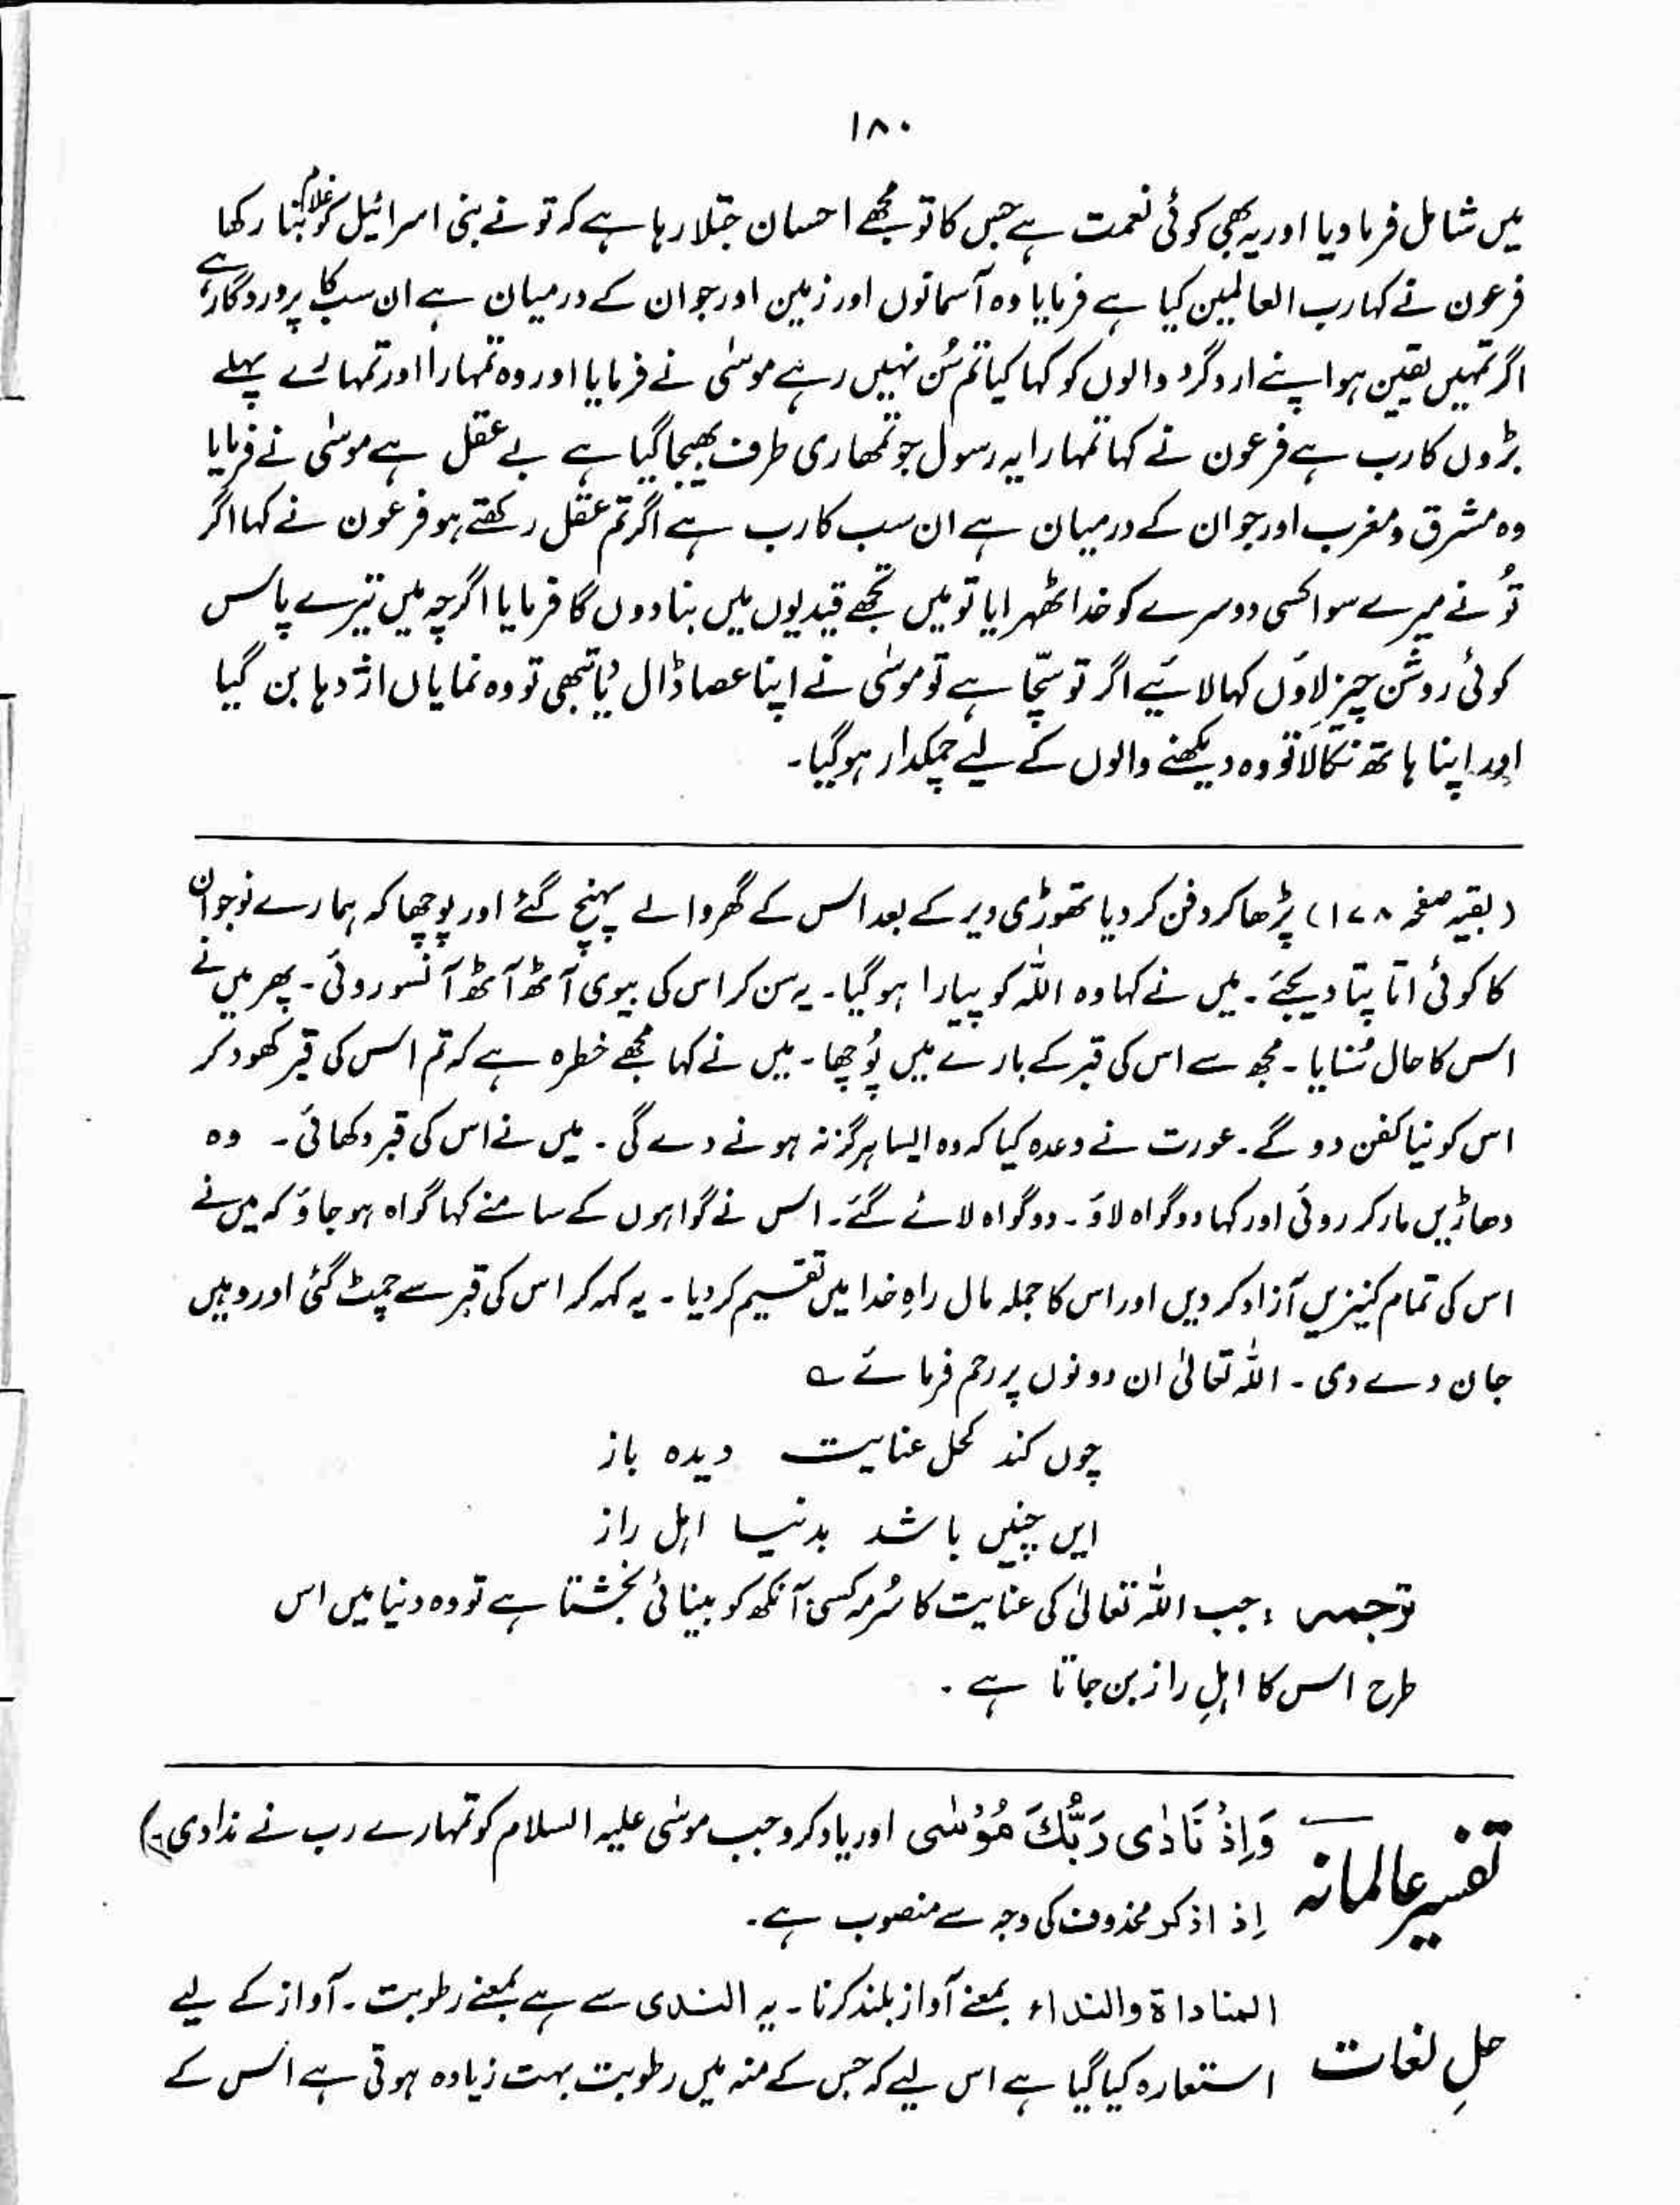 ۱۸۰
میں شامل فرما دیا اور یہ بھی کوئی نعمت ہے جس کا تو مجھے احسان جتلا رہا ہے کہ تو نے بنی اسرائیل کو غلام بنا رکھا ہے
فرعون نے کہا رب العالمین کیا ہے فرمایا وہ آسمانوں اور زمین اور جو ان کے درمیان ہے ان سب کا پروردگار ہے
اگر تمہیں یقین ہو اپنے اردگرد والوں کو کہا کیا تم سُن نہیں رہے موسٰی نے فرمایا اور وہ تمہارا اور تمہارے پہلے
بڑوں کا رب ہے فرعون نے کہا تمہارا یہ رسول جو تمھاری طرف بھیجا گیا ہے بے عقل ہے موسٰی نے فرمایا
وہ مشرق و مغرب اور جو ان کے درمیان ہے ان سب کا رب ہے اگر تم عقل رکھتے ہو فرعون نے کہا اگر
تُو نے میرے سوا کسی دوسرے کو خدا ٹھہرایا تو میں تجھے قیدیوں میں بنا دوں گا فرمایا اگرچہ میں تیرے پاس
کوئی روشن چیز لاؤں کہا لائیے اگر تو سچّا ہے تو موسٰی نے اپنا عصا ڈال دیا تبھی تو وہ نمایاں اژدہا بن گیا
اور اپنا ہاتھ نکالا تو وہ دیکھنے والوں کے لیے چمکدار ہوگیا۔
(بقیہ صفحہ ۱۷۸) پڑھا کر دفن کر دیا تھوڑی دیر کے بعد اس کے گھر والے پہنچ گئے اور پوچھا کہ ہمارے نوجوان
کا کوئی اتا پتا دیجئے۔ میں نے کہا وہ اللہ کو پیارا ہو گیا۔ یہ سن کر اس کی بیوی آٹھ آٹھ آنسو روئی۔ پھر میں نے
اس کا حال سُنایا۔ مجھ سے اس کی قبر کے بارے میں پُوچھا۔ میں نے کہا مجھے خطرہ ہے کہ تم اس کی قبر کھود کر
اس کو نیا کفن دو گے۔ عورت نے وعدہ کیا کہ وہ ایسا ہرگز نہ ہونے دے گی۔ میں نے اس کی قبر دکھائی۔ وہ
دھاڑیں مار کر روئی اور کہا دو گواہ لاؤ۔ دو گواہ لائے گئے۔ اس نے گواہوں کے سامنے کہا گواہ ہو جاؤ کہ میں نے
اس کی تمام کنیزیں آزاد کر دیں اور اس کا جملہ مال راہِ خدا میں تقسیم کر دیا۔ یہ کہہ کر اس کی قبر سے چمٹ گئی اور وہیں
جان دے دی۔ اللہ تعالیٰ ان دونوں پر رحم فرمائے ؎
چوں کند کحل عنایت دیدہ باز
ایں چنیں باشد بدنیا اہل راز
ترجمہ : جب اللہ تعالیٰ کی عنایت کا سُرمہ کسی آنکھ کو بینائی بخشتا ہے تو وہ دنیا میں اس
طرح اس کا اہلِ راز بن جاتا ہے ۔
تفسیر عالمانہ
وَاِذْ نَادٰى رَبُّكَ مُوْسٰى اور یاد کرو جب موسٰی علیہ السلام کو تمہارے رب نے ندا دی۔)
اِذ اذکر محذوف کی وجہ سے منصوب ہے۔
حلِ لغات
المناداۃ والنداء بمعنے آواز بلند کرنا۔ یہ الندی سے ہے بمعنے رطوبت۔ آواز کے لیے
استعارہ کیا گیا ہے اس لیے کہ جس کے منہ میں رطوبت بہت زیادہ ہوتی ہے اس کے